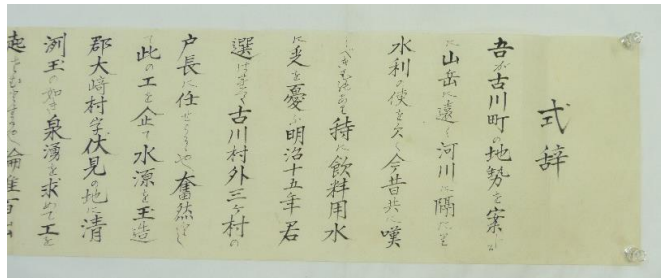 式辞
吾が古川町の地勢を案ずるに
山岳に遠く河川に隔たり
水利の便を欠く今昔共に嘆
特に飲料用水
に乏を憂ふ明治十五年君
選ばれて古川村外三ヶ村の
戸長に任せらるるや奮然として
此の工を企て水源を玉造
郡大崎村字伏見の地に清
洌玉の如き泉湧を求めて工を
起